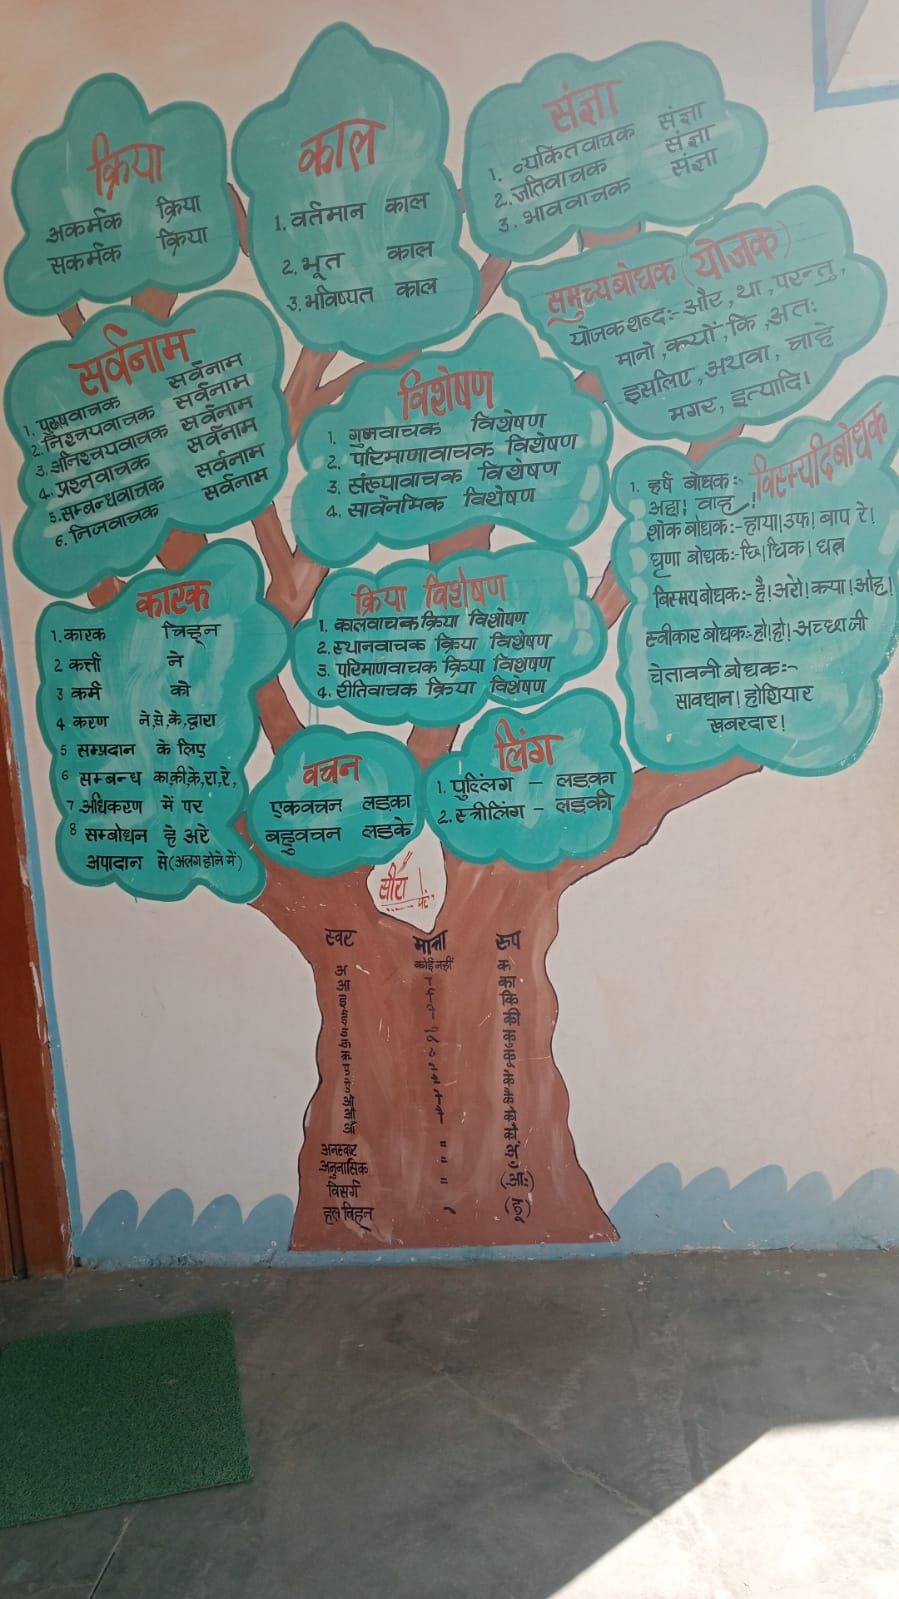 क्रिया
अकर्मक क्रिया
सकर्मक क्रिया
काल
1. वर्तमान काल
2. भूत काल
3. भविष्यत काल
संज्ञा
1. व्यकितवाचक संज्ञा
2. जतिवाचक संज्ञा
3. भाववाचक संज्ञा
समुच्यबोधक (योजक)
योजक शब्द:- और, था, परन्तु,
मानो, क्यों, कि, अतः
इसलिए, अथवा, चाहे
मगर, इत्यादि।
सर्वनाम
1. पुरुषवाचक सर्वनाम
2. निश्चयवाचक सर्वनाम
3. अनिश्चयवाचक सर्वनाम
4. प्रश्नवाचक सर्वनाम
5. सम्बन्धवाचक सर्वनाम
6. निजवाचक सर्वनाम
विशेषण
1. गुणवाचक विशेषण
2. परिमाणवाचक विशेषण
3. संख्यावाचक विशेषण
4. सार्वनेमिक विशेषण
विस्म्यदिबोधक
1. हर्ष बोधक:-
अहा! वाह!
शोक बोधक:- हाया। उफ। बाप रे।
घृणा बोधक:- छि। धिक।
बिस्मय बोधक:- है! अरो! कया! ओह!
स्वीकार बोधक:- हो! हो!-अच्छा जी
चेतावनी बोधक:-
सावधान! होशियार
खबरदार!
कारक
1. कारक चिह्न
2 कर्त्ता ने
3 कर्म को
4 करण ने, से, के, द्वारा
5 सम्प्रदान के लिए
6 सम्बन्ध का, की, के, रा, रे,
7 अधिकरण में पर
8 सम्बोधन हे अरे
अपादान से (अलग होने में)
क्रिया विशेषण
1. कालवाचक क्रिया विशेषण
2. स्थानवाचक क्रिया विशेषण
3. परिमाणवाचक क्रिया विशेषण
4. रीतिवाचक क्रिया विशेषण
वचन
एकवचन लड़का
बहुवचन लडके
लिंग
1. पुल्लिंग - लड़का
2. स्त्रीलिंग - लड़की
स्वर मात्रा रूप
अ कोई नहीं क
आ ा का
अनस्वार
अनुनासिक
विसर्ग